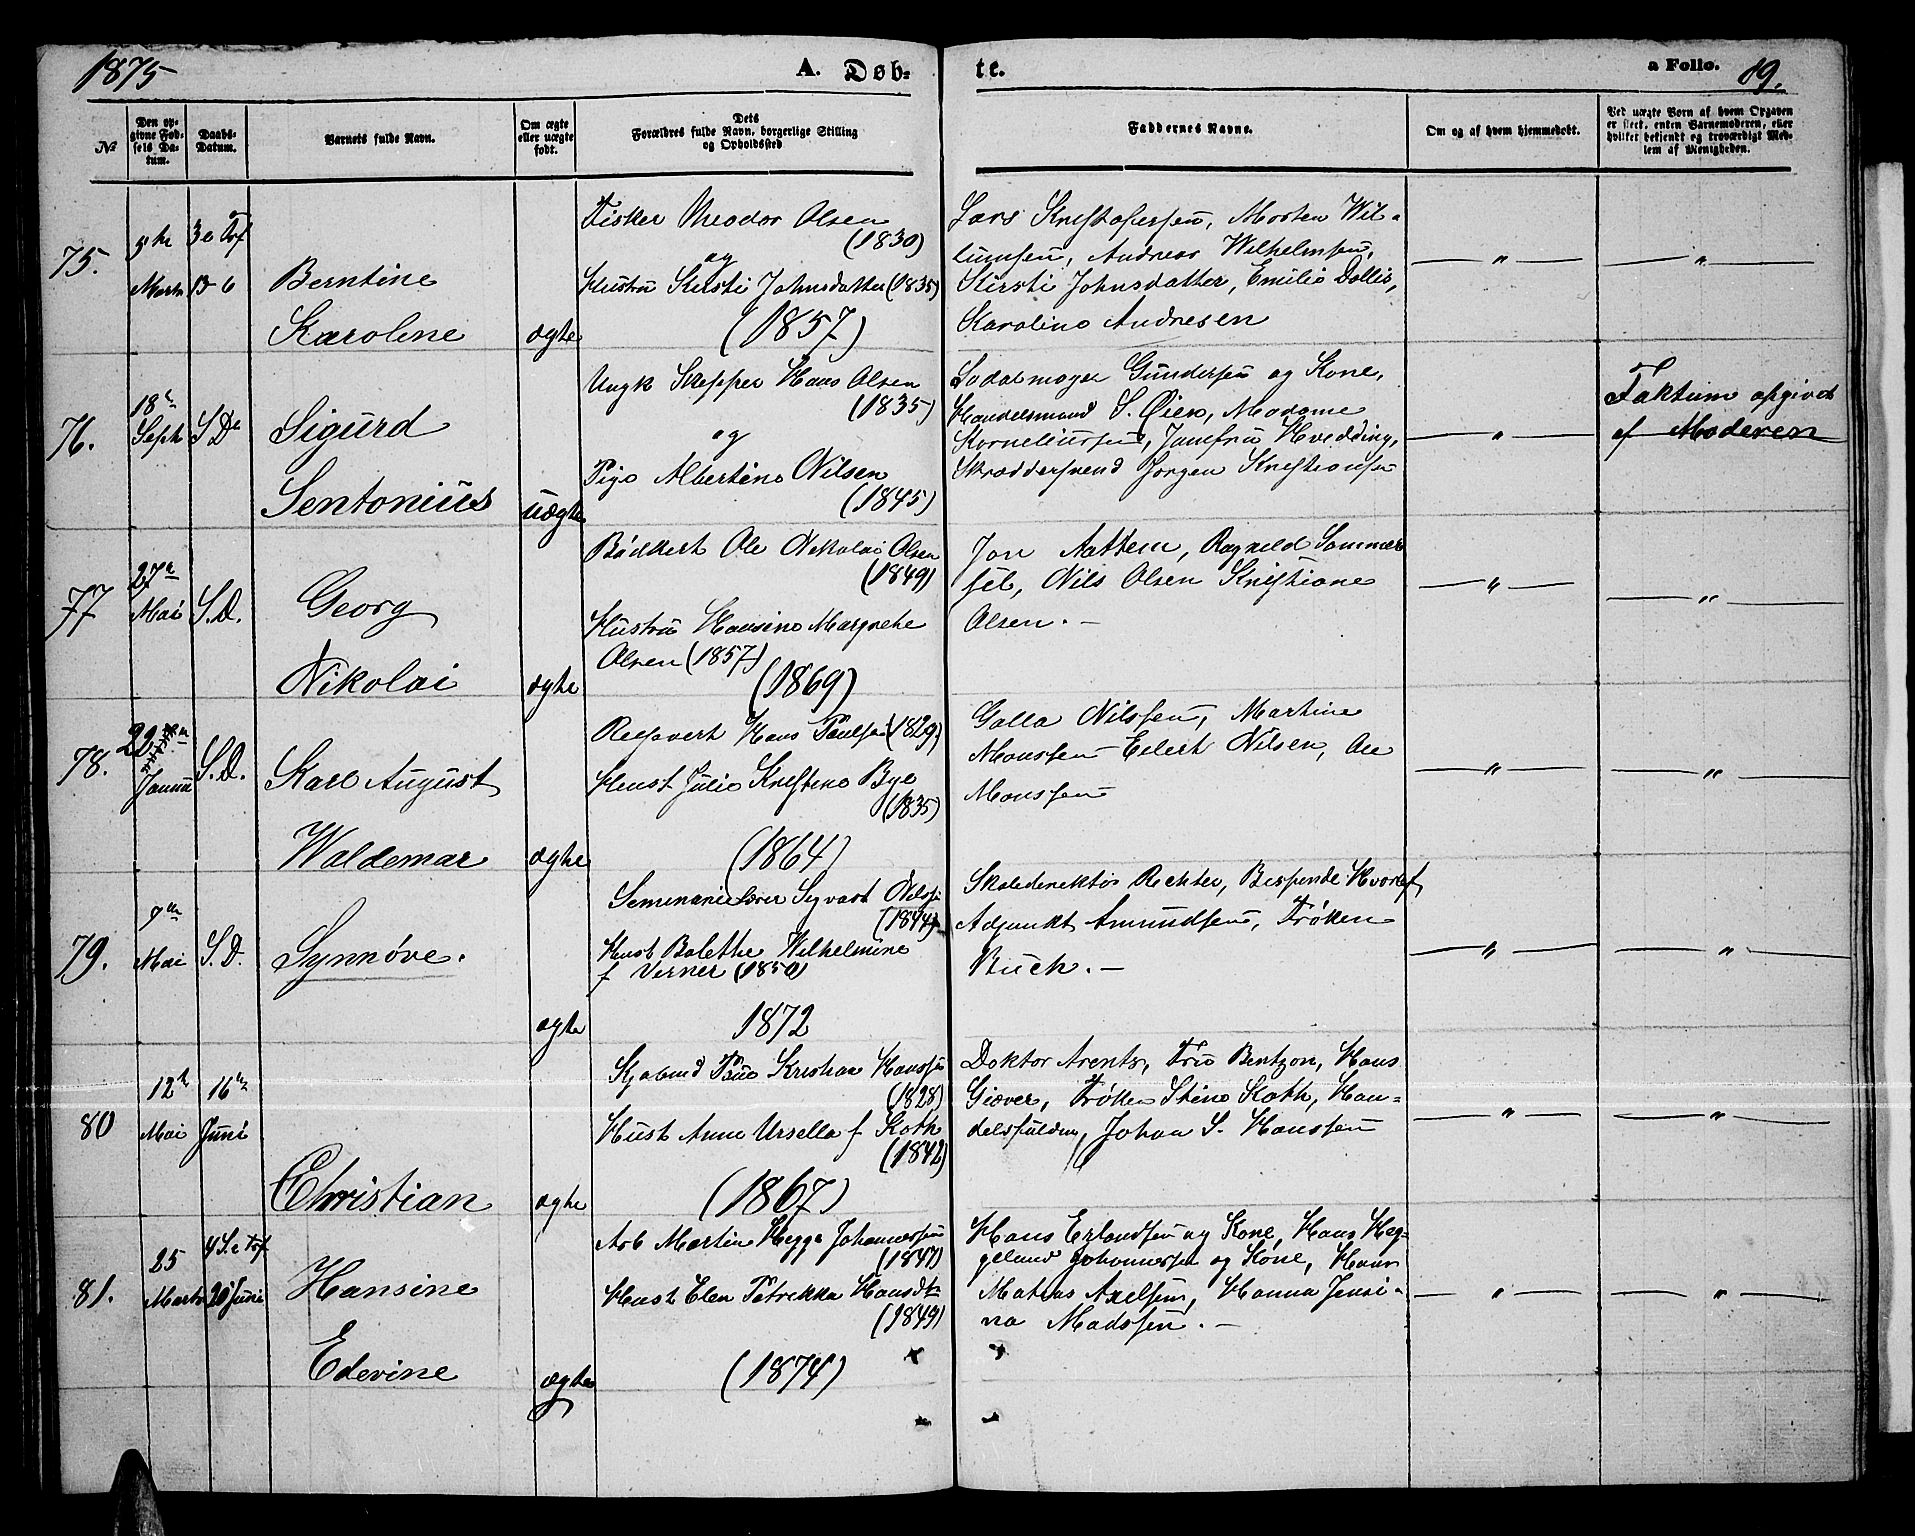 1875
A. Døb-
te.
a Folio. 89.
№
Den op-
givne Fød-
sels Da-
tum.
Daabs-
Datum.
Barnets fulde Navn.
Om ægte
eller uægte
født.
Dets
Forældres fulde Navn, borgerlige Stilling
og Opholdssted.
Faddernes Navne.
Om og af hvem hjemmedøbt.
Ved uægte Børn af hvem Opgaven
er skeet, enten Barnemoderen, eller
hvilket bekjendt og troværdigt Med-
lem af Menigheden.
75.
5te
Marts
3e Trf
13-6
Berntine
Karoline
ægte
Fisker Theodor Olsen
(1830)
og
Hustru Kirsti Johnsdatter (1835)
(1857)
Lars Kristofersen, Morten Wil-
lumsen, Andreas Wilhelmsen,
Kirsti Johnsdatter, Emilie Dollis,
Karoline Andresen
— " —
— " —
76.
18e
Septr
S De
Sigurd
Sentonius
uægte
Ungk Skipper Hans Olsen
(1835)
og
Pige Albertine Nilsen
(1845)
Sadelmager Gundersen og Kone,
Handelsmand S. Øien, Madame
Korneliussen, Jomfru Hvedding,
Skræddersvend Jørgen Kristiansen
— " —
Faktum opgivet
af Moderen
77
27e
Mai
S. D.
Georg
Nikolai
ægte
Bødkert Ole Nikolai Olsen
(1849)
Hustru Hansine Margrethe
Olsen (1857)
(1869)
Jon Aattem, Ragnild Sommer
sel, Nils Olsen Kristiane
Olsen. —
— " —
— " —
78.
22
Janua
S. D.
Karl August
Waldemar
ægte
Hans Paulsen (1829)
Hust Julie Kristine Bye
(1835)
(1864)
Galla Nilssen, Martine
Monssen Eilert Nilsen, Ole
Monssen
— " —
— " —
79.
9de
Mai
S. D.
Synnøve.
ægte
Seminarielærer Syvert Nilssen
(1844)
Hust Bolethe Wilhelmine
f Verner (1850)
1872
Skoledirektør Rechter, Bispinde Hvoslef
Adjunkt Amundsen, Frøken
Buch. —
— " —
— " —
80
12te
Mai
16de
Juni
Christian
ægte
Kjøbmd Kristian Hanssen
(1828)
Hust Anne Ursella f Koth
(1842)
(1867)
Doktor Arents, Fru Bentzon, Hans
Giæver, Frøken Stine Koth, Han-
delsfuldm, Johan S. Hanssen
— " —
— " —
81.
25
Marts
4 S. e Trf
20 Juni
Hansine
Edevine
ægte
Arb Martin Hegge Johannessen
(1847)
Hust Elen Petrikka Hansdtr
(1849)
(1874)
Hans Erlandsen og Kone, Hans Heg-
geland Johannessen og Kone, Hans
Matias Axelsen, Hanna Jensi-
na Madssen. —
— " —
— " —